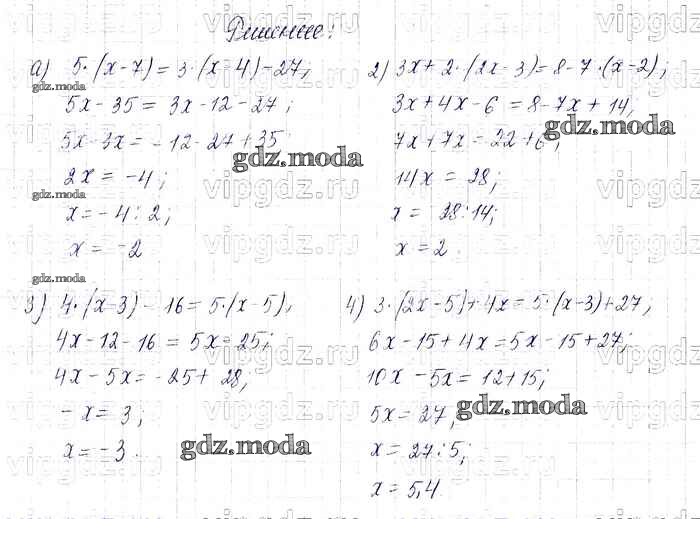 Решение:
а) 5·(x-7) = 3·(x-4)-27;
5x - 35 = 3x - 12 - 27;
5x-3x = -12-27+35
2x = -4;
x = -4 : 2;
x = -2
2) 3x + 2·(2x-3) = 8-7·(x-2);
3x+4x-6 = 8-7x+14;
7x+7x = 22+6;
14x = 28;
x = 28:14;
x = 2
3) 4·(x-3) - 16 = 5·(x-5);
4x-12-16 = 5x-25;
4x-5x = -25+28,
-x = 3;
x = -3.
4) 3·(2x-5)+4x = 5·(x-3)+27;
6x-15+4x = 5x-15+27;
10x-5x = 12+15;
5x = 27;
x = 27:5;
x = 5,4
gdz.moda
gdz.moda
gdz.moda
gdz.moda
gdz.moda
gdz.moda
gdz.moda
vipgdz.ru